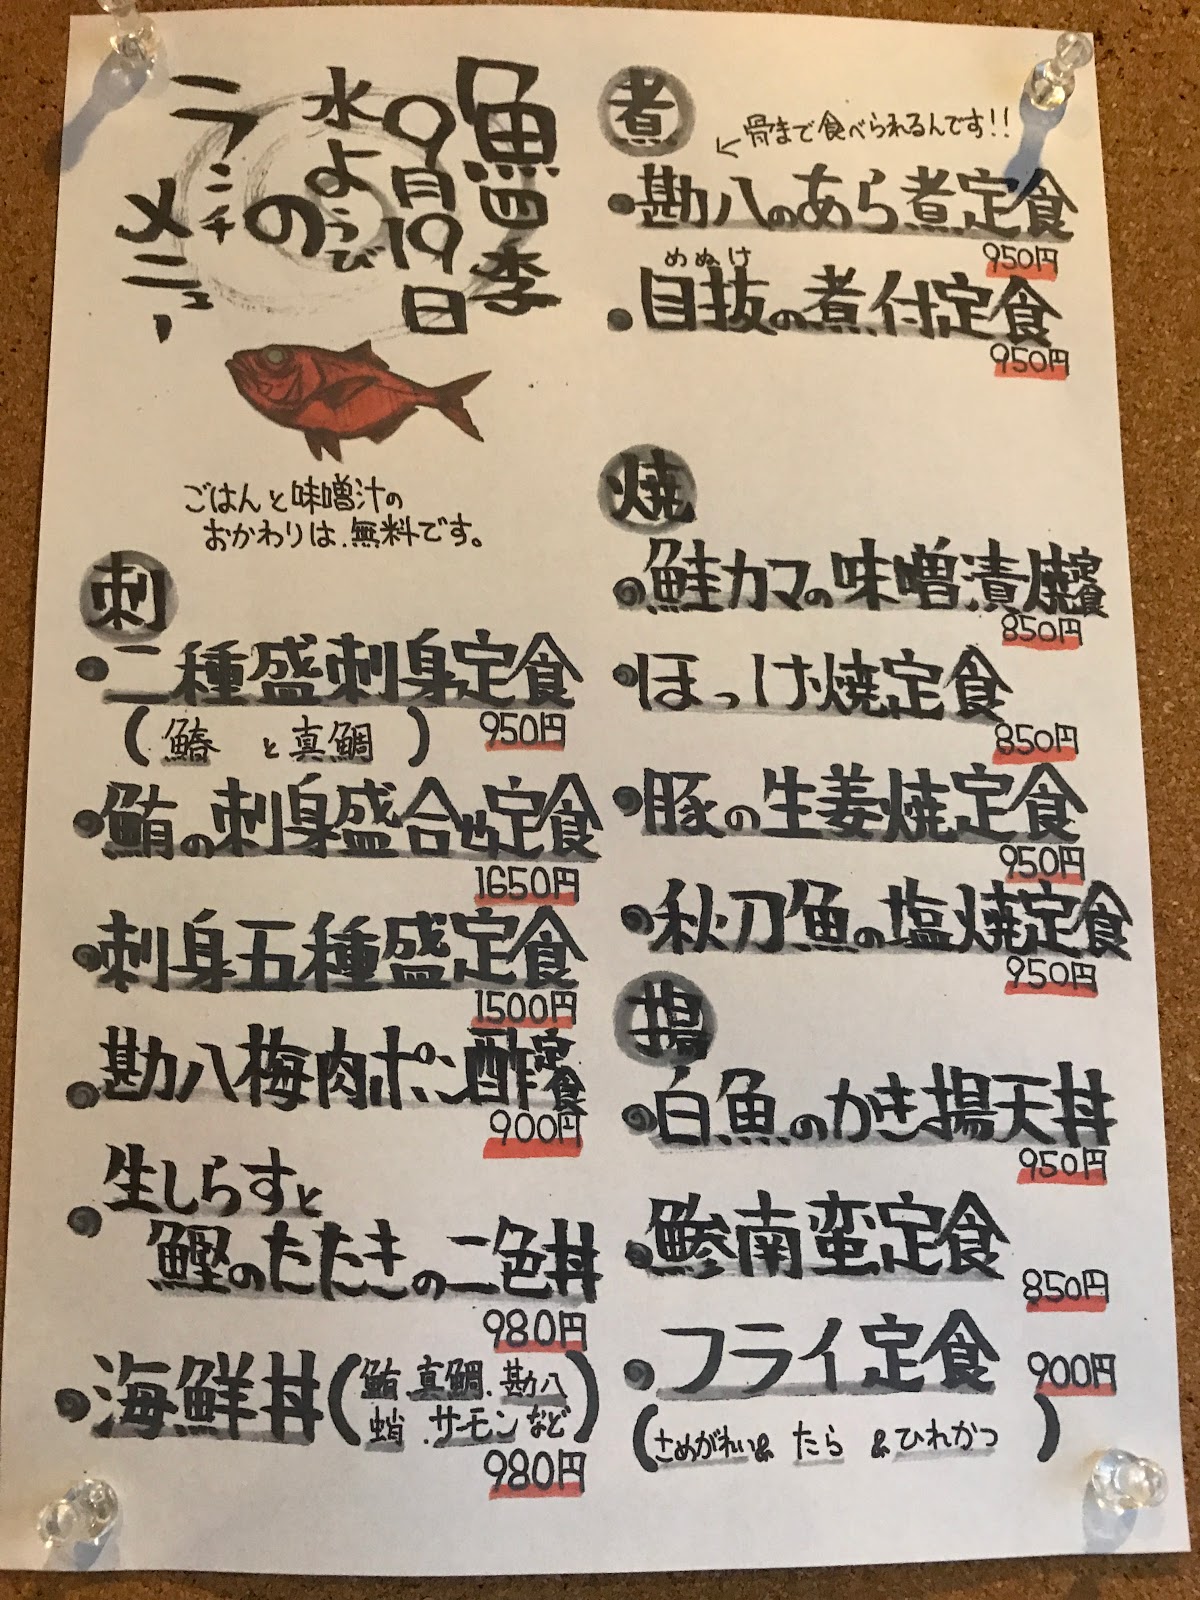 魚四季
9月19日
水ようび
の
ランチ
メニュー
ごはんと味噌汁の
おかわりは、無料です。
刺
二種盛刺身定食
950円
(鰆と真鯛)
鮪の刺身盛合せ定食
1650円
刺身五種盛定食
1500円
勘八梅肉ポン酢定食
900円
生しらすと
鰹のたたきの二色丼
980円
海鮮丼(鮪.真鯛.勘八
蛸.サーモンなど)
980円
煮
←骨まで食べられるんです!!
勘八のあら煮定食
950円
めぬけ
目抜の煮付定食
950円
焼
鮭カマの味噌漬焼定食
850円
ほっけ焼定食
850円
豚の生姜焼定食
950円
秋刀魚の塩焼定食
950円
揚
白魚のかき揚天丼
950円
鯵南蛮定食
850円
フライ定食 900円
(さめがれい&たら&ひれかつ)